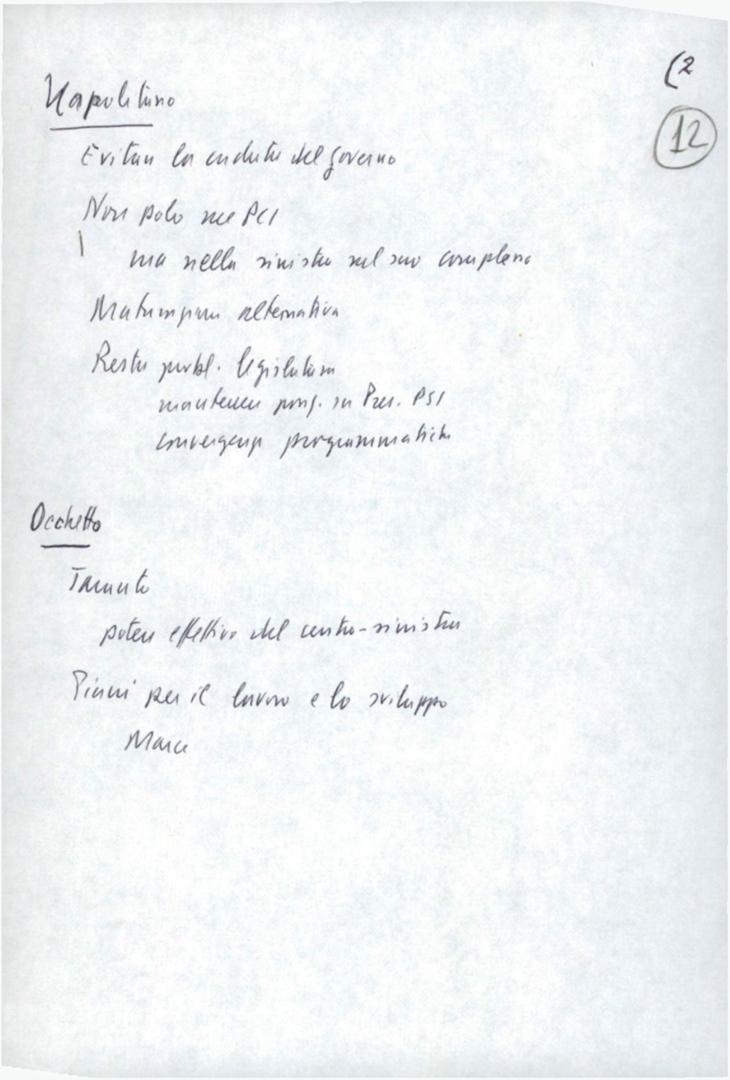 (2
12
Napolitano
Evitare la caduta del governo
Non solo nel PCI
ma nella sinistra nel suo complesso
Maturazione alternativa
Resto probl. legislatura
mantenere prop. su Pres. PSI
convergenze programmatiche
Occhetto
Taranto
potere effettivo del centro-sinistra
Piani per il lavoro e lo sviluppo